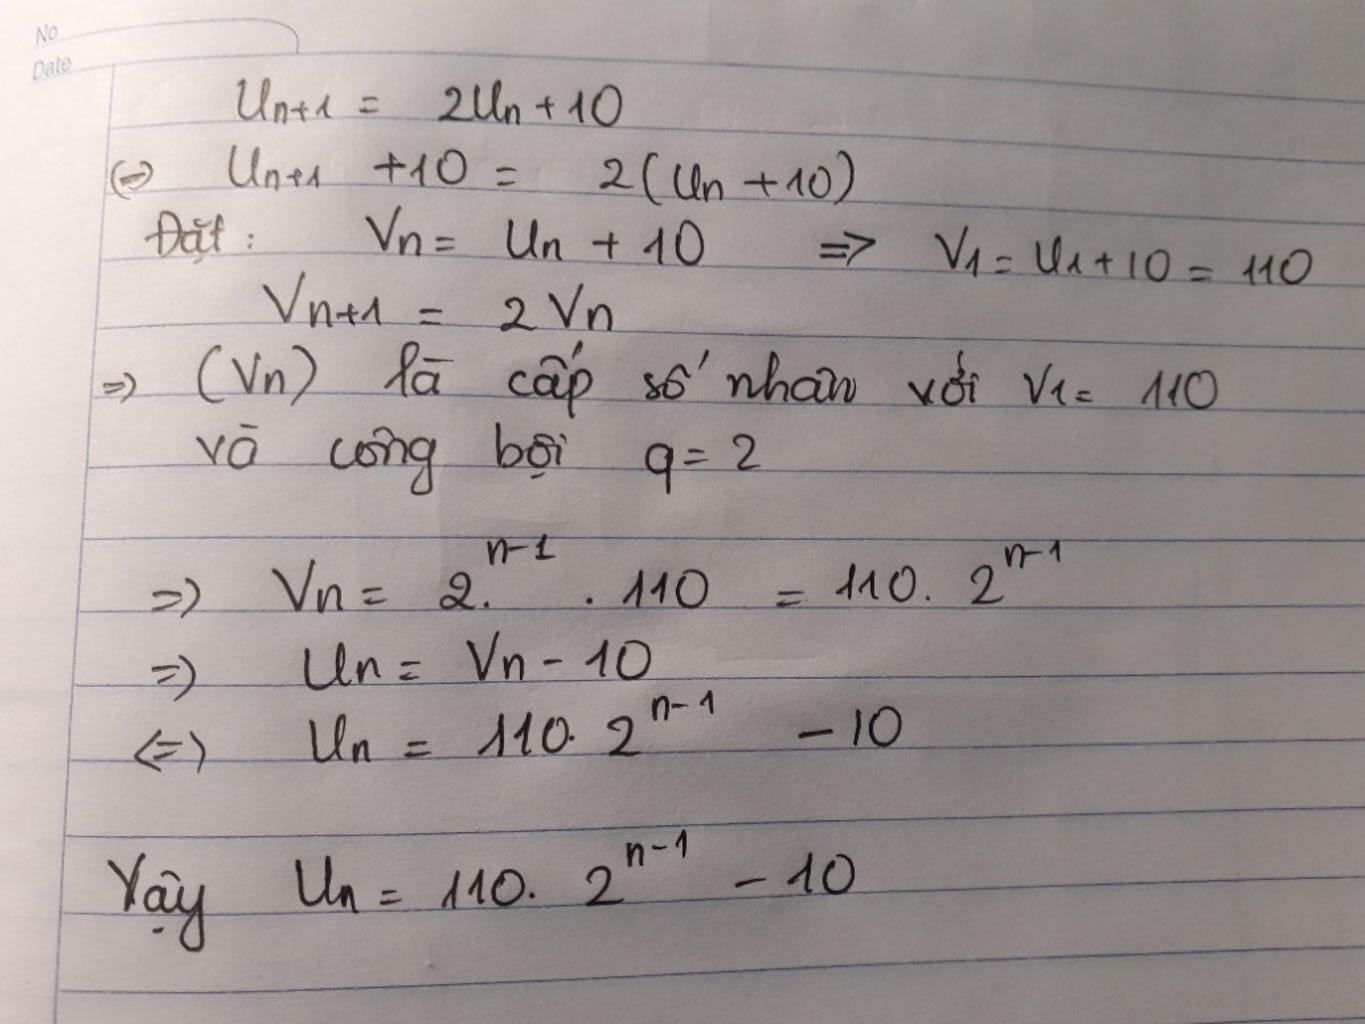 No
Date
Un+1 = 2Un + 10
(=) Un+1 +10 = 2(Un +10)
Đặt: Vn = Un + 10 => V1 = U1 + 10 = 110
Vn+1 = 2Vn
=> (Vn) là cấp số nhân với V1 = 110
và công bội q = 2
=) Vn = 2.ⁿ⁻¹ . 110 = 110. 2ⁿ⁻¹
=) Un = Vn - 10
(=) Un = 110. 2ⁿ⁻¹ - 10
Vậy Un = 110. 2ⁿ⁻¹ - 10